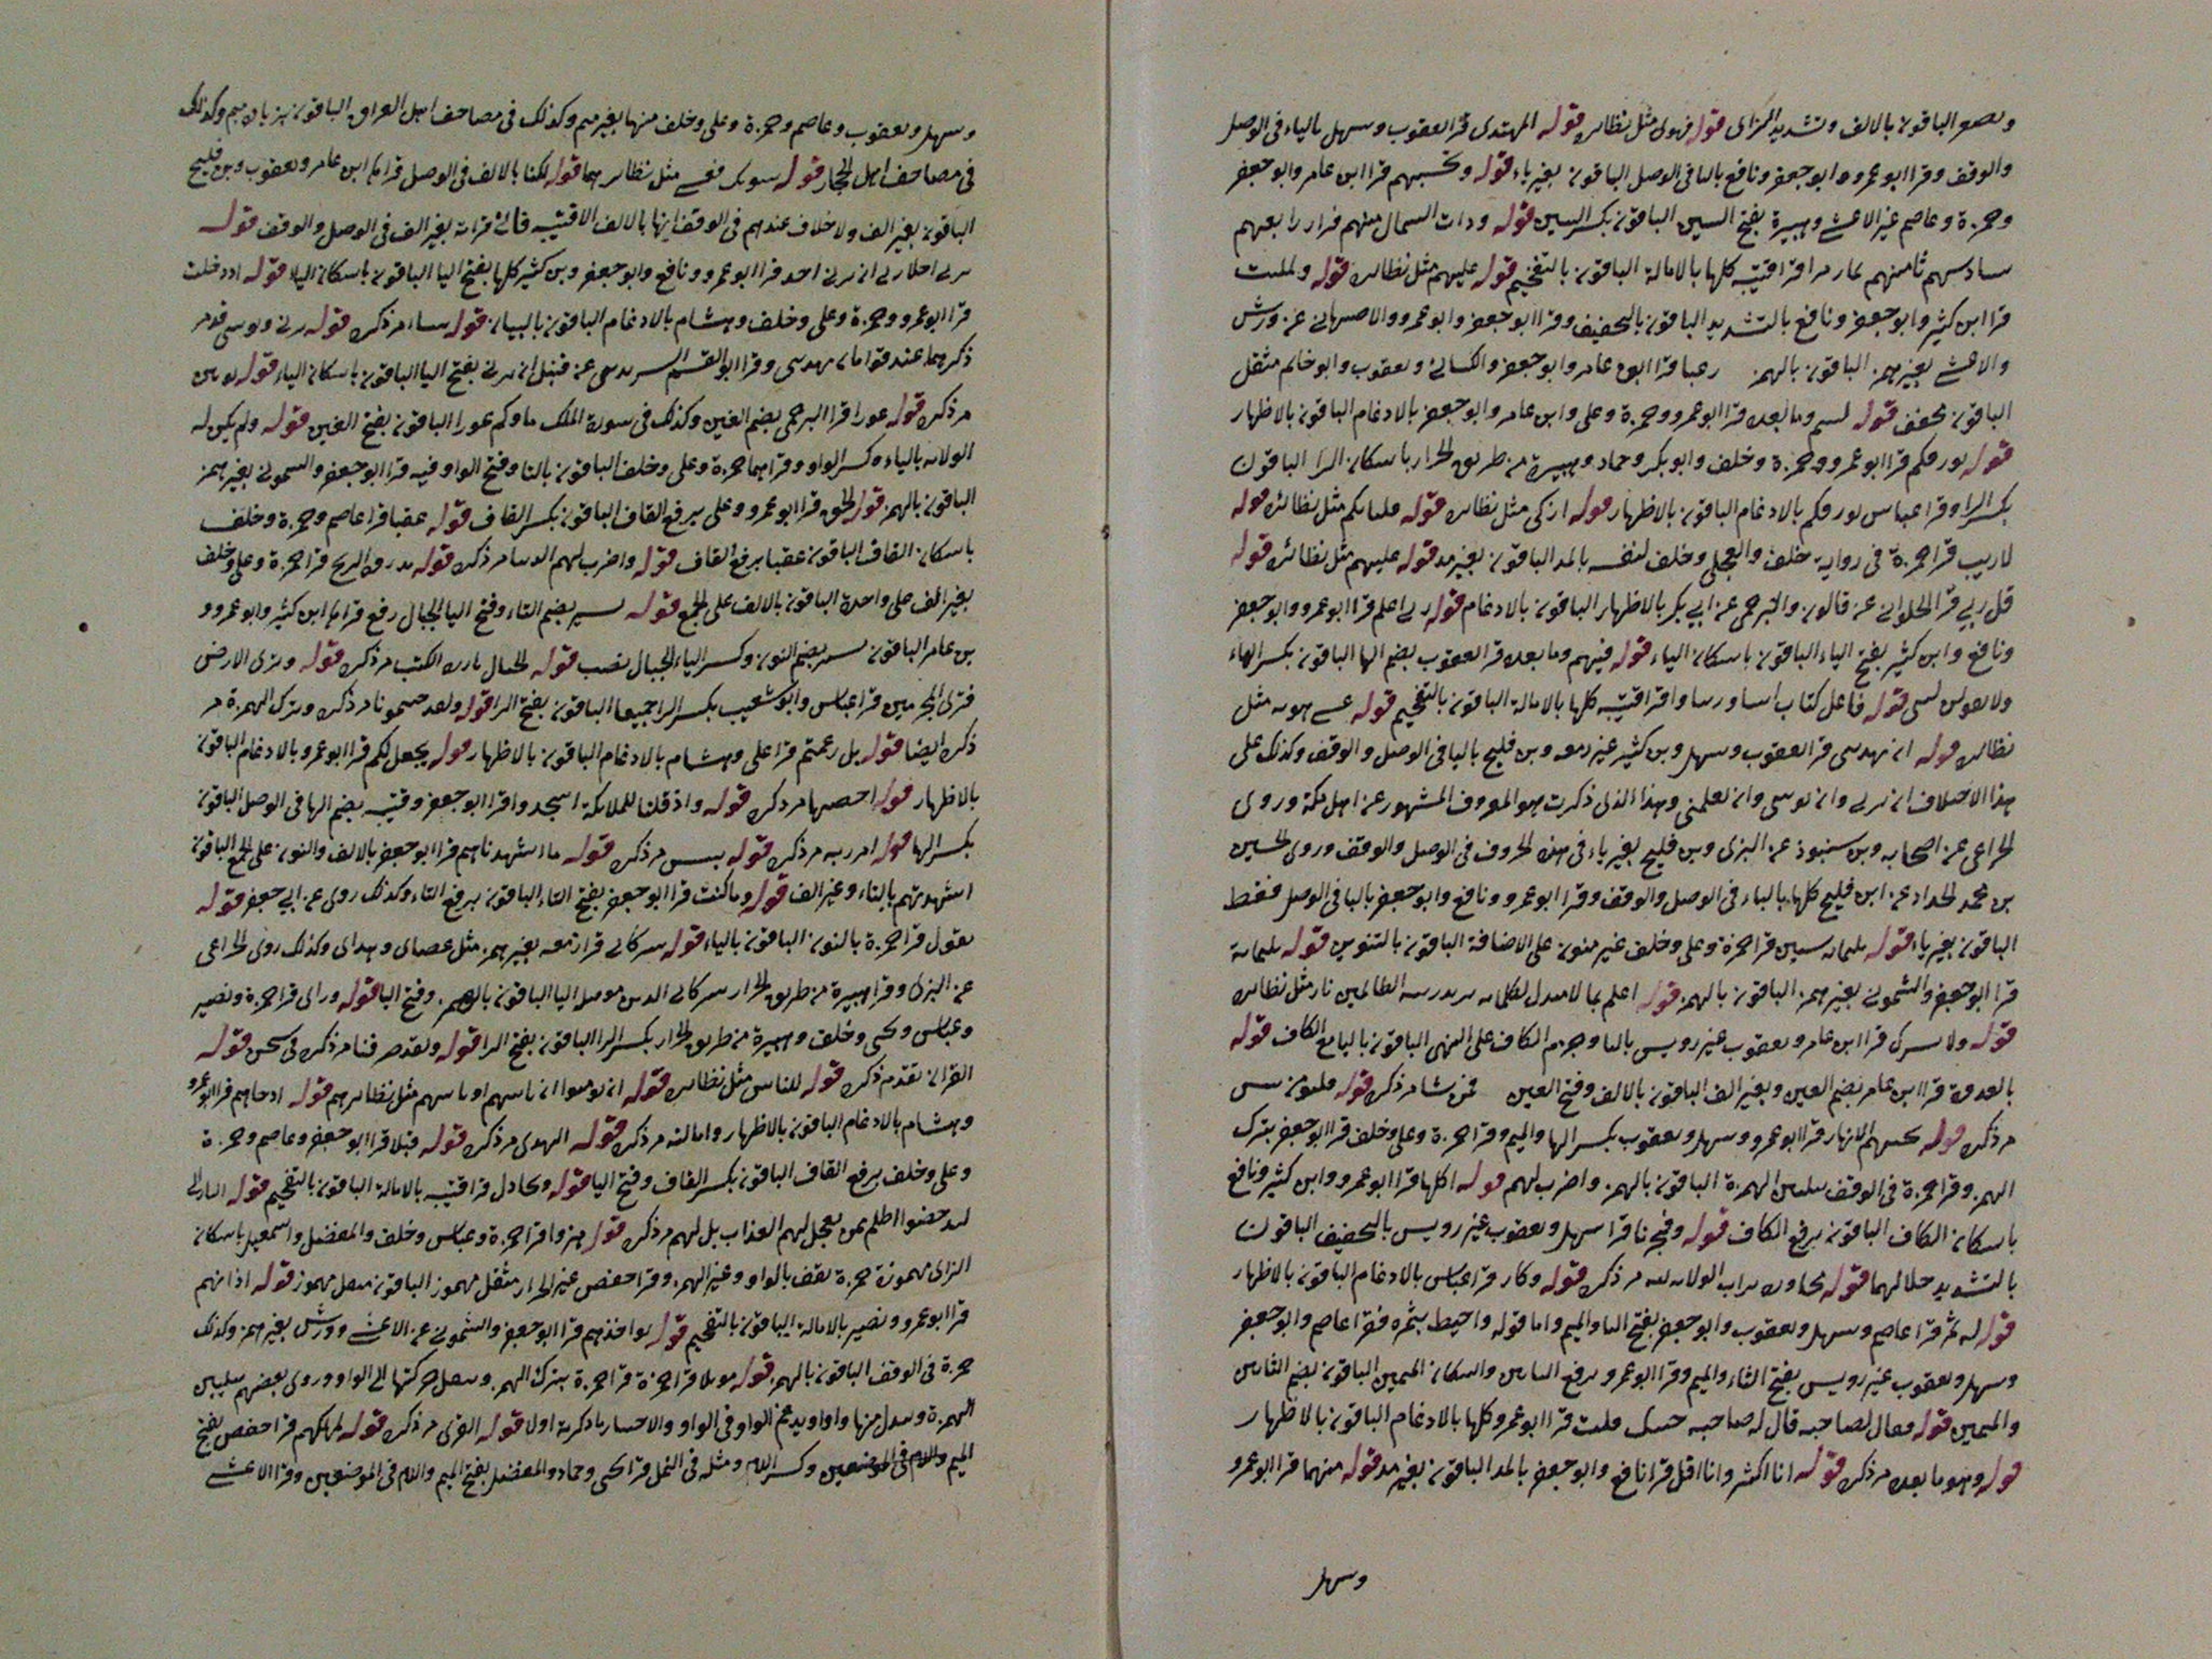 وىصىر الباقون بالالف وتشديد الزاى قوله فهوى مثل نظائره قوله المهتدى قرا يعقوب وسهل بالياء فى الوصل
والوقف وقرا ابو عمرو وابو جعفر ونافع باليا فى الوصل الباقون بغير ياء قوله وتحسبهم قرا ابن عامر وابو جعفر
وحمزة وعاصم غير الاعشى وهبيرة بفتح السين الباقون بكسر السين قوله وذات الشمال منهم فرارا رابعهم
سادسهم ثامنهم كلها بالامالة الباقون بالتفخيم قوله عليهم مثل نظائره قوله ولملىت
قرا ابن كثير وابو جعفر ونافع بالتشديد الباقون بالتخفيف وقرا ابو جعفر وابو عمرو والاصبهانى عن ورش
والاعشى بغير همز الباقون بالهمز رعبا قرا ابن عامر وابو جعفر والكسائى ويعقوب وابو حاتم مثقل
الباقون مخفف قوله لبىىم وما بعده قرا ابو عمرو وحمزة وعلى وابن عامر وابو جعفر بالادغام الباقون بالاظهار
قوله بورقكم قرا ابو عمرو وحمزة وخلف وابو بكر وحماد وهبيرة من طريق الخراز باسكان الرا الباقون
بكسر الرا وقرا عباس بورقكم بالادغام الباقون بالاظهار قوله ازكى مثل نظائره قوله فلياتكم مثل نظائره قوله
لاريب قرا حمزة فى رواية خلف والعجلى وخلف لنفسه بالمد الباقون بغير مد قوله عليهم مثل نظائره قوله
قل ربى قرا الحلوانى عن قالون والبرجمى عن ابى بكر بالاظهار الباقون بالادغام قوله ربى اعلم قرا ابو عمرو وابو جعفر
ونافع وابن كثير بفتح الياء الباقون باسكان الياء قوله فيهم وما بعده قرا يعقوب بضم الها الباقون بكسر الهاء
ولا تقولن لشى قوله فاعل كلها بالامالة الباقون بالتفخيم قوله عسى مثل
نظائره قوله ان يهدينى قرا يعقوب وسهل وبن كثير غير زمعه وبن فليح باليا فى الوصل والوقف وكذلك على
هذا الاختلاف ان ترنى وان يوتينى وان تعلمنى وهذا الذى ذكرت هو المعروف المشهور عن اهل مكة وروى
الخزاعى عن اصحابه وبن سنبوذ عن البزى وبن فليح بغير ياء فى هذه الحروف فى الوصل والوقف وروى الحسين
بن محمد الحداد عن ابن فليح كلها بالياء فى الوصل والوقف وقرا ابو عمرو ونافع وابو جعفر باليا فى الوصل فقط
الباقون بغير ياء قوله ثلثمائة سنين قرا حمزة وعلى وخلف غير منون على الاضافة الباقون بالتنوين قوله ثلثمائة
قرا ابو جعفر والشمونى بغير همز الباقون بالهمز قوله اعلم بما لا مبدل لكلماته للظالمين نار مثل نظائره
قوله ولا يشرك قرا ابن عامر ويعقوب غير رويس بالتا وجزم الكاف على النهى الباقون باليا ورفع الكاف قوله
بالغدوة قرا ابن عامر بضم الغين وبغير الف الباقون بالالف وفتح الغين فمن شا مر ذكره قوله
مر ذكره قوله تحتهم الانهار قرا ابو عمرو وسهل ويعقوب بكسر الها والميم وقرا حمزة وعلى وخلف قرا ابو جعفر بترك
الهمز وقرا حمزة فى الوقف بتليين الهمزة الباقون بالهمز واضرب لهم قوله اكلها قرا ابو عمرو وابن كثير ونافع
باسكان الكاف الباقون برفع الكاف قوله وفجرنا قرا سهل ويعقوب غير رويس بالتخفيف الباقون
بالتشديد خلالهما قوله مر ذكره قوله وكان قرا عباس بالادغام الباقون بالاظهار
قوله له ثمر قرا عاصم وسهل ويعقوب وابو جعفر بفتح الثا والميم واما قوله واحيط بثمره فقرا عاصم وابو جعفر
وسهل ويعقوب غير رويس بفتح الثاء والميم وقرا ابو عمرو برفع الثاين واسكان الميمين الباقون بضم الثاين
والميمين قوله فقال لصاحبه قال له صاحبه قرا ابو عمرو كلها بالادغام الباقون بالاظهار
قوله وهو وما بعده مر ذكره قوله انا اكثر وانا اقل قرا نافع وابو جعفر بالمد الباقون بغير مد قوله منهما قرا ابو عمرو
وسهل
وسهل ويعقوب وعاصم وحمزة وعلى وخلف منها بغير ميم وكذلك فى مصاحف اهل العراق الباقون بزيادة ميم وكذلك
فى مصاحف اهل الحجاز قوله مثل نظائرهما قوله لكنا بالالف فى الوصل قرا ابن عامر ويعقوب وبن فليح
الباقون بغير الف ولا خلاف عندهم فى الوقف انها بالالف الا قتيبه فانه قراته بغير الف فى الوصل والوقف قوله
بربى احدا ربى ان ترنى احد قرا ابو عمرو ونافع وابو جعفر وبن كثير كلها بفتح اليا الباقون باسكان اليا قوله اذ دخلت
قرا ابو عمرو وحمزة وعلى وخلف وهشام بالادغام الباقون بالبيان قوله شاء مر ذكره قوله ترنى ويوتينى قد مر
ذكرهما عند قوله ان يهدينى وقرا ابو القسم عن قنبل ان ترنى بفتح اليا الباقون باسكان الياء قوله
مر ذكره قوله غورا قرا البرجمى بضم الغين وكذلك فى سورة الملك ماوكم غورا الباقون بفتح الغين قوله ولم يكن له
الولاية بالياء وكسر الواو وقراهما حمزة وعلى وخلف الباقون بالتا وفتح الواو فيه قرا ابو جعفر والشمونى بغير همز
الباقون بالهمز قوله الحق قرا ابو عمرو وعلى برفع القاف الباقون بكسر القاف قوله عقبا قرا عاصم وحمزة وخلف
باسكان القاف الباقون عقبا برفع القاف قوله واضرب لهم الدنيا مر ذكره قوله تذروه الريح قرا حمزة وعلى وخلف
بغير الف على واحدة الباقون بالالف على الجمع قوله تسير بضم التاء وفتح اليا الجبال رفع قرا ابن كثير وابو عمرو و
بن عامر الباقون نسير بضم النون وكسر الياء الجبال نصب قوله الكتب مر ذكره قوله وترى الارض
فترى المجرمين قرا عباس وابو شعيب بكسر الرا جميعا الباقون بفتح الرا قوله مر ذكره وترك الهمزة مر
ذكره ايضا قوله بل زعمتم قرا على وهشام بالادغام الباقون بالاظهار قوله يجعل لكم قرا ابو عمرو بالادغام الباقون
بالاظهار قوله احصيها مر ذكره قوله واذ قلنا للملائكة اسجدوا قرا ابو جعفر وقتيبه بضم الها فى الوصل الباقون
بكسر الها قوله امر ربه مر ذكره قوله بئس مر ذكره قوله ما اشهدناهم قرا ابو جعفر بالالف والنون على الجمع الباقون
اشهدتهم بالتاء وغير الف قوله وما كنت قرا ابو جعفر بفتح التاء الباقون برفع التاء وكذلك روى عن ابى جعفر قوله
نقول قرا حمزة بالنون الباقون بالياء قوله شركائى قرا زمعه بغير همز مثل عصاى وهداى وكذلك روى الخزاعى
عن البزى وقرا هبيرة من طريق الخراز شركائى الذين مرسل اليا الباقون بالهمز وفتح اليا قوله وراى قرا حمزة ونصير
وعباس ويحيى وخلف وهبيرة من طريق الخراز بكسر الرا الباقون بفتح الرا قوله ولقد صرفنا مر ذكره قوله
القران تقدم ذكره قوله للناس مثل نظائره قوله ان يومنوا مثل نظائرهم قوله اذ جاهم قرا ابو عمرو
وهشام بالادغام الباقون بالاظهار وامالته مر ذكره قوله الهدى مر ذكره قوله قبلا قرا ابو جعفر وعاصم وحمزة
وعلى وخلف برفع القاف الباقون بكسر القاف وفتح اليا قوله ويجادل قرا قتيبه بالامالة الباقون بالتفخيم قوله
ليدحضوا اظلم ممن لعجل لهم العذاب بل لهم مر ذكره قوله هزوا قرا حمزة وعباس وخلف والمفضل واسمعيل باسكان
الزاى مهموزة حمزة يقف بالواو وغير الهمز وقرا حفص غير الخراز مثقل مهموز الباقون مثقل مهموز قوله اذانهم
قرا ابو عمرو ونصير بالامالة الباقون بالتفخيم قوله يواخذهم قرا ابو جعفر والشمونى عن الاعشى وورش بغير همز وكذلك
حمزة فى الوقف الباقون بالهمز قوله موئلا قرا حمزة بترك الهمز حركتها الى الواو وروى بعضهم بتليين
الهمزة ويبدل منها واوا ويدغم الواو فى الواو قوله القرى مر ذكره قوله لمهلكهم قرا حفص بفتح
الميم واللام فى الموضعين وكسر اللام ومثله فى النمل قرا يحيى وحماد والمفضل بفتح الميم واللام فى الموضعين وقرا الاعشى